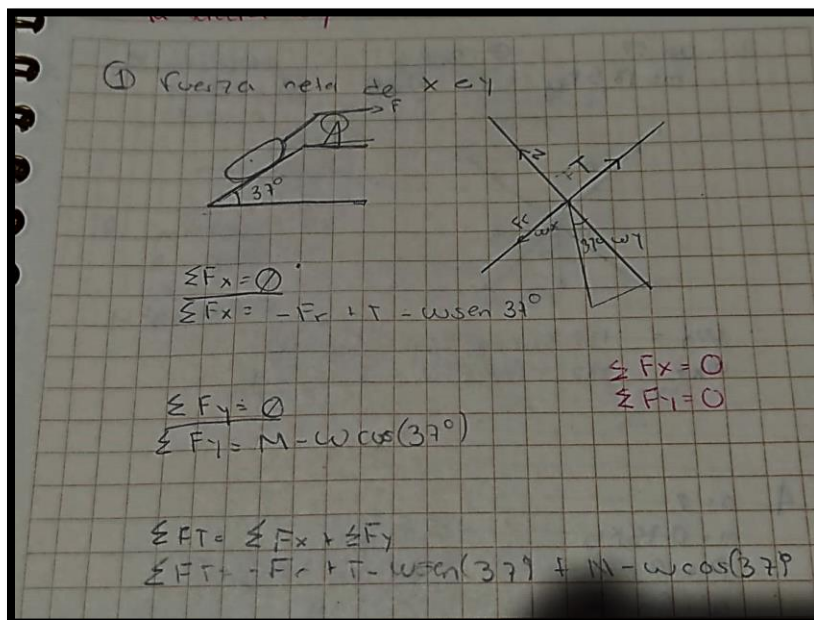 ① Fuerza neta de x e y
F
A
37°
N
T
Fr
wx
37°
wy
ΣFx = ∅
ΣFx = -Fr + T - wsen 37°
ΣFx = 0
ΣFy = 0
ΣFy = ∅
ΣFy = N - w cos(37°)
ΣFT = ΣFx + ΣFy
ΣFT = -Fr + T - wsen(37°) + N - w cos(37°